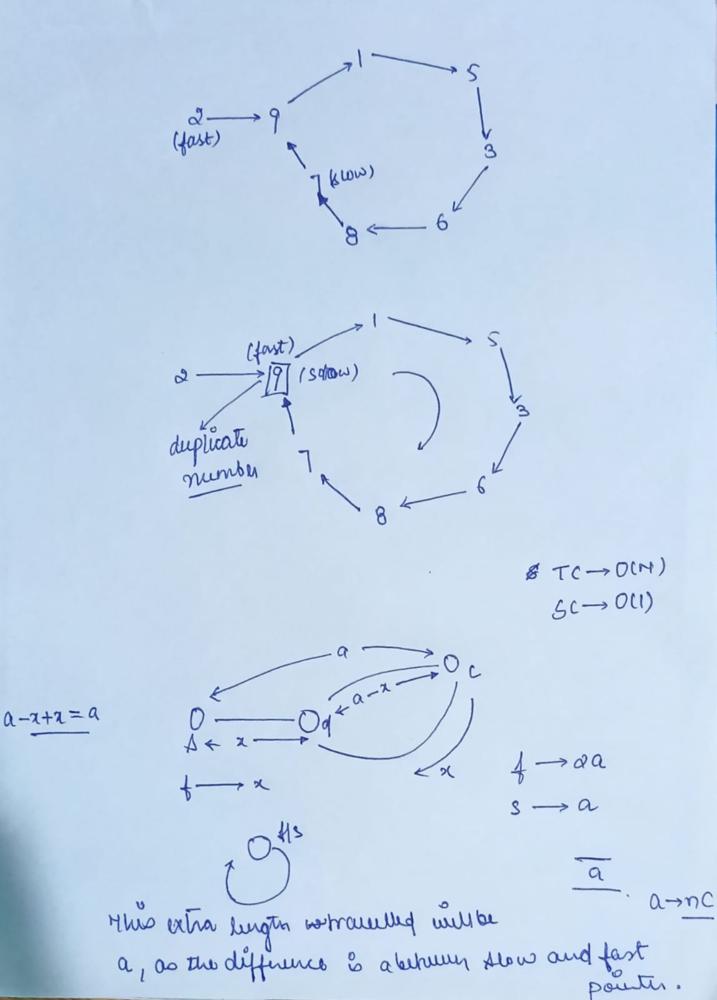 1
5
2 → 9
(fast)
3
7 (slow)
8 ← 6
1
(fast)
5
2 → 9 (slow)
3
duplicate
number
7
6
8
TC → O(N)
SC → O(1)
a
C
a-x
a-x+x = a
d
← x →
x
f → 2a
f → x
s → a
f/s
a
a → nC
This extra length travelled will be
a, as the difference is a between slow and fast
pointer.